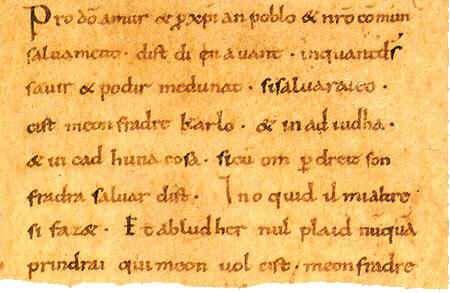 Pro dõ amur & p xp̃ian poblo & nr̃o cõmun
saluament . dist di en auant . inquantds̃
sauir & podir medunat . sisaluaraieo .
cist meon fradre karlo . & in ad iudha .
& in cad huna cosa . sicũ om p dreit son
fradra saluar dist . Ino quid il mialtre
si faz& . Et abludher nul plaid nũquã
prindrai qui meon uol cist . meon fradre